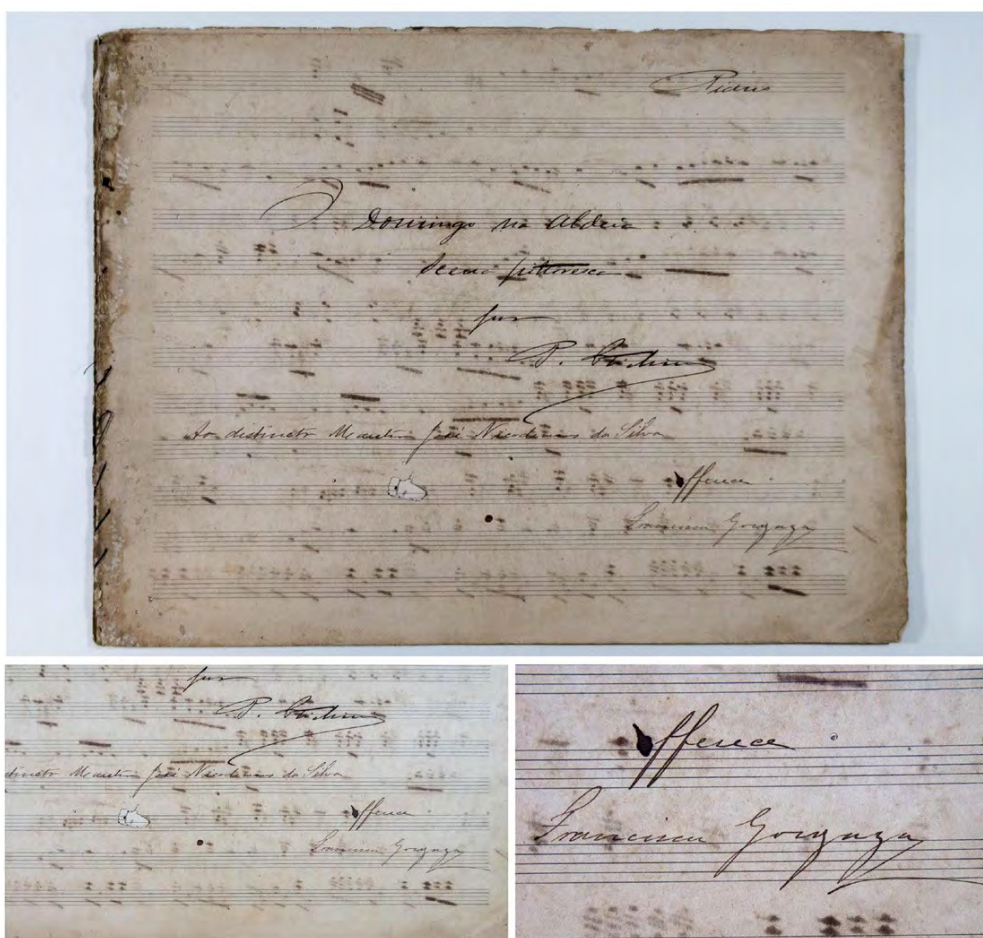 Piano
O Domingo na Aldeia
Scena pittoresca
por
P.
Ao distincto Maestro José Nicolau da Silva
Offerece
Francisca Gonzaga
por
P.
distincto Maestro José Nicolau da Silva
Offerece
Francisca Gonzaga
Offerece
Francisca Gonzaga